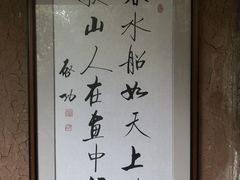 水船如天上
山人在畫中
啟功